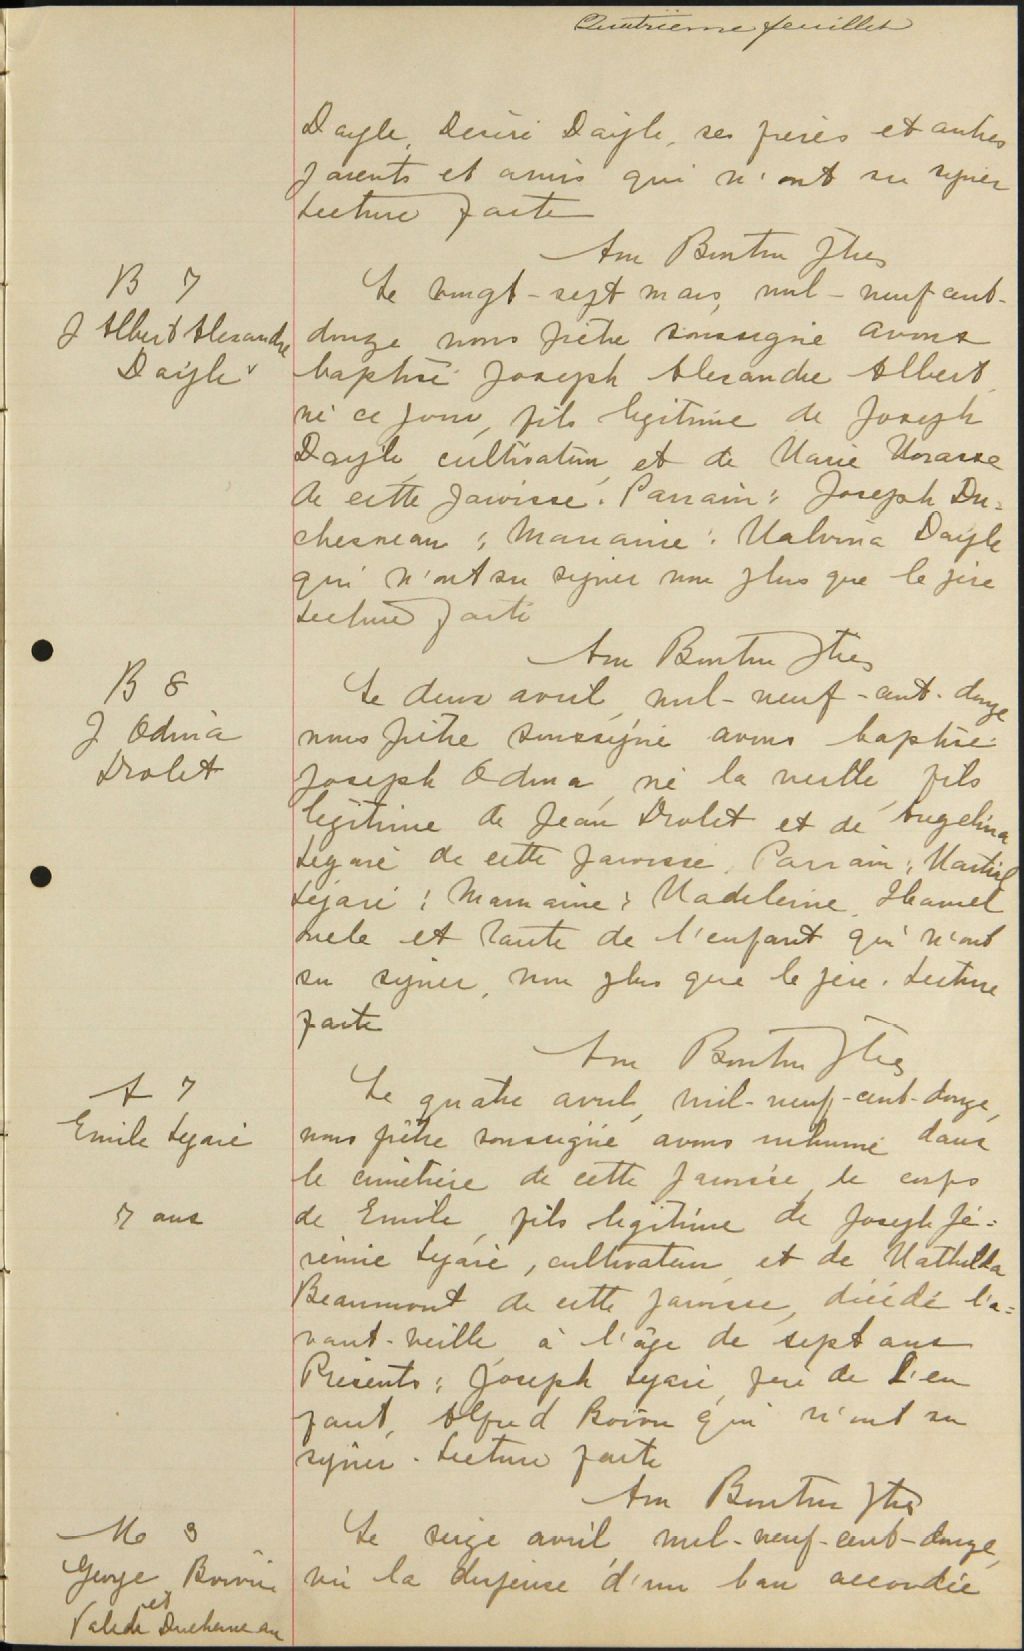 Quatrième feuillet
Daigle, Désiré Daigle, ses frères et autres
parents et amis qui n'ont su signer
Lecture faite
Ptre
B 7
J Albert Alexandre
Daigle
Le vingt-sept mars, mil-neuf cent-
douze nous prêtre soussigné avons
baptisé Joseph Alexandre Albert,
né ce jour, fils légitime de Joseph
Daigle, cultivateur, et de Marie
de cette paroisse. Parrain: Joseph Du=
chesneau; Marraine: Malvina Daigle
qui n'ont su signer non plus que le père
Lecture faite
Ptre
B 8
J Odina
Drolet
Le deux avril, mil-neuf-cent-douze
nous prêtre soussigné avons baptisé
Joseph Odina, né la veille, fils
légitime de Jean Drolet et de Angelina
Légaré de cette paroisse. Parrain: Martial
Légaré; Marraine: Madeleine Hamel
oncle et tante de l'enfant qui n'ont
su signer, non plus que le père. Lecture
faite
Ptre
S 7
Emile Légaré
7 ans
Le quatre avril, mil-neuf-cent-douze,
nous prêtre soussigné, avons inhumé dans
le cimetière de cette paroisse, le corps
de Emile, fils légitime de Joseph Jé=
rémie Légaré, cultivateur, et de Mathilda
Beaumont de cette paroisse, décédé l'a=
vant-veille, à l'âge de sept ans
Présents: Joseph Légaré, père de l'en
fant, Alfred Boivin qui n'ont su
signer. Lecture faite
Ptre
M 3
George Boivin
et
Duchesneau
Le seize avril mil-neuf-cent-douze,
vu la dispense d'un ban accordée